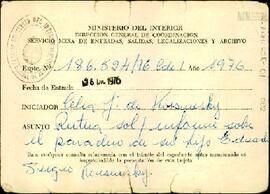 MINISTERIO DEL INTERIOR
DIRECCION GENERAL DE COORDINACION
SERVICIO MESA DE ENTRADAS, SALIDAS, LEGALIZACIONES Y ARCHIVO
Expte. Nº 186.524/76 Año 1976
Fecha de Entrada 1976
INICIADOR Celia J. de Kosnusky
ASUNTO Reitera sol/ informe sobre
el paradero de su hijo Eduardo
Para cualquier consulta relacionada con el trámite del expediente arriba mencionado es
imprescindible la presentación de esta tarjeta
Sergio